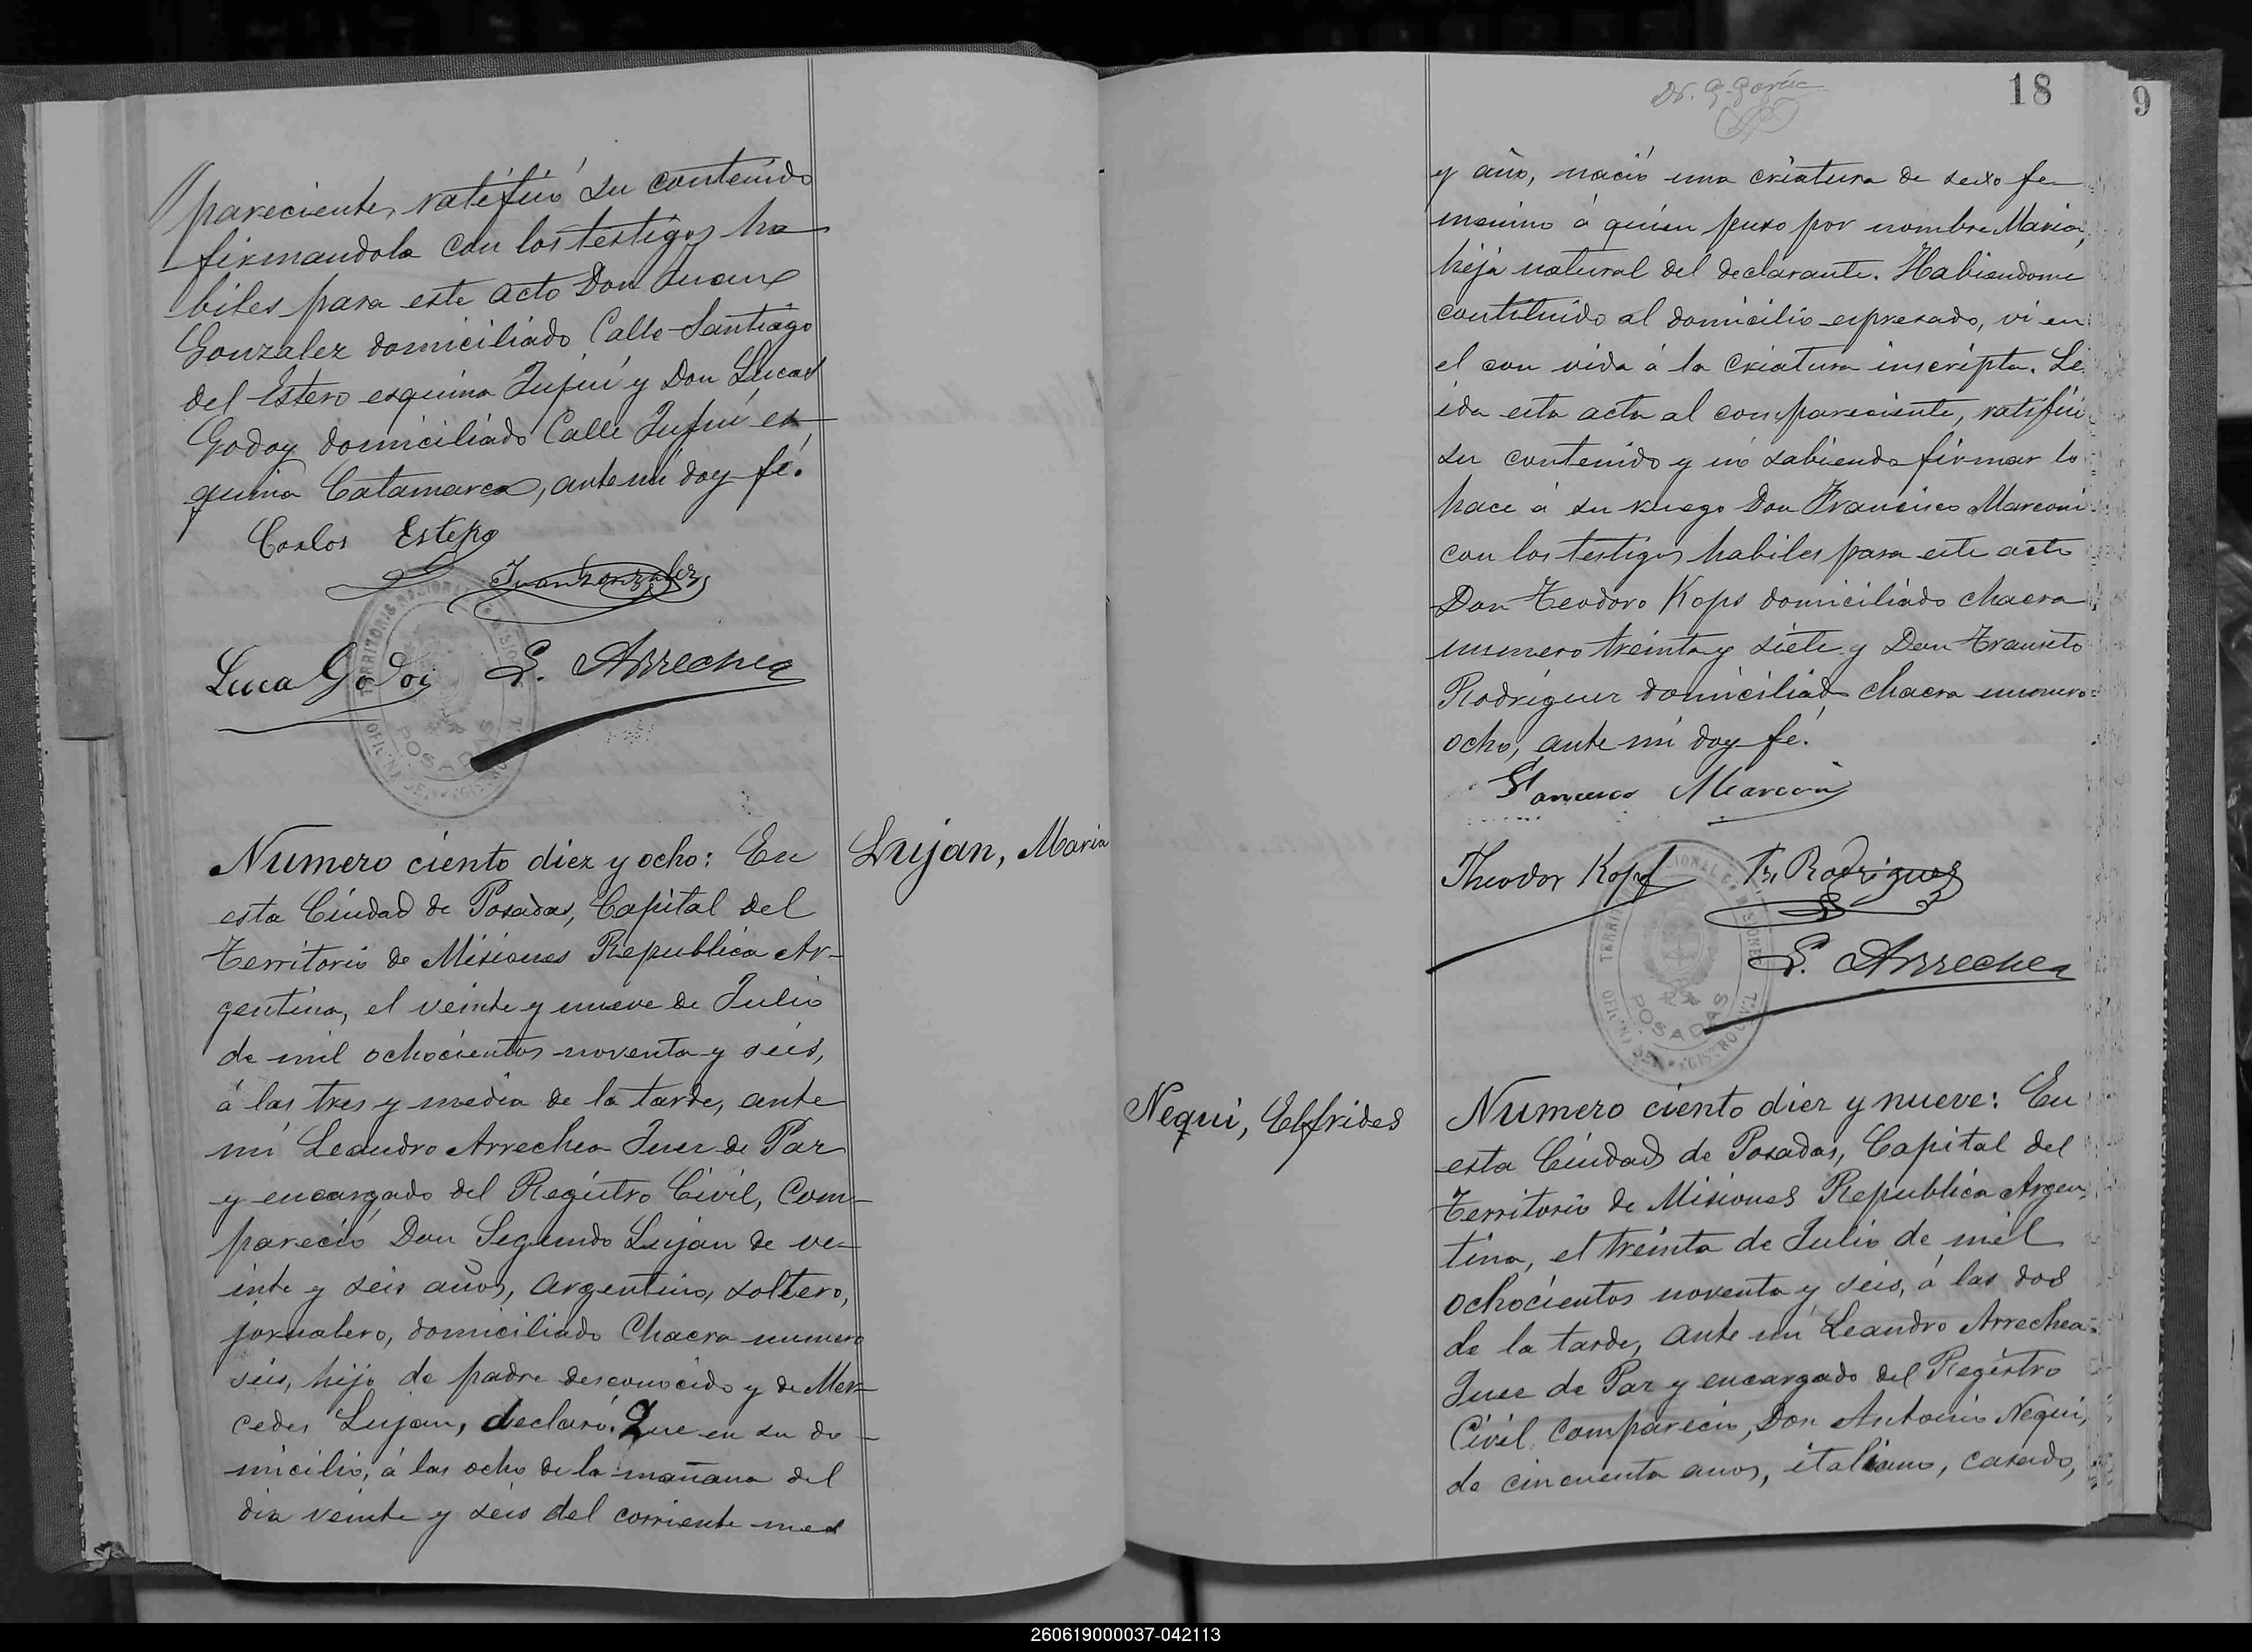 pareciente, ratificó su contenido
firmandola con los testigos ha
biles para este acto Don Juan
Gonzalez domiciliado Calle Santiago
del Estero esquina Jujuí y Don Lucas
Godoy domiciliado Calle Jujuí es
quina Catamarca, ante mi doy fé.
Carlos Estepo
Juan Gonzalez
Luca Godoi L. Arrechea
POSADAS
Numero ciento diez y ocho: En
Lujan, Maria
esta Ciudad de Posadas, Capital del
Territorio de Misiones Republica Ar-
gentina, el veinte y nueve de Julio
de mil ochocientos noventa y seis,
á las tres y media de la tarde, ante
mi Leandro Arrechea Juez de Paz
y encargado del Registro Civil, Com-
pareció Don Segundo Lujan de ve-
inte y seis años, argentino, soltero,
jornalero, domiciliado Chacra numero
seis, hijo de padre desconocido y de Mer-
cedes Lujan, declaró: Que en su do-
micilio, á las ocho de la mañana del
dia veinte y seis del corriente mes
Dr. G. Garcia
18
9
y año, nació una criatura de sexo fe-
menino á quien puso por nombre Maria,
hija natural del declarante. Habiendome
contituido al domicilio espresado, vi en
el con vida á la criatura inscripta. Le
ida esta acta al compareciente, ratificó
su contenido y nó sabiendo firmar lo
hace á su ruego Don Francisco Marconi
con los testigos habiles para este acto
Don Teodoro Kops domiciliado chacra
numero treinta y siete y Don Transito
Rodriguez domiciliado chacra numero
ocho, ante mi doy fé.
Francesco Marconi
Theodor Kopf Tr. Rodriguez
L. Arrechea
POSADAS
Nequi, Elfrides
Numero ciento diez y nueve: En
esta Ciudad de Posadas, Capital del
Territorio de Misiones Republica Argen
tina, el treinta de Julio de mil
ochocientos noventa y seis, á las dos
de la tarde, ante mi Leandro Arrechea
Juez de Paz y encargado del Registro
Civil compareció, Don Antonio Nequi,
de cincuenta anos, italiano, casado,
260619000037-042113